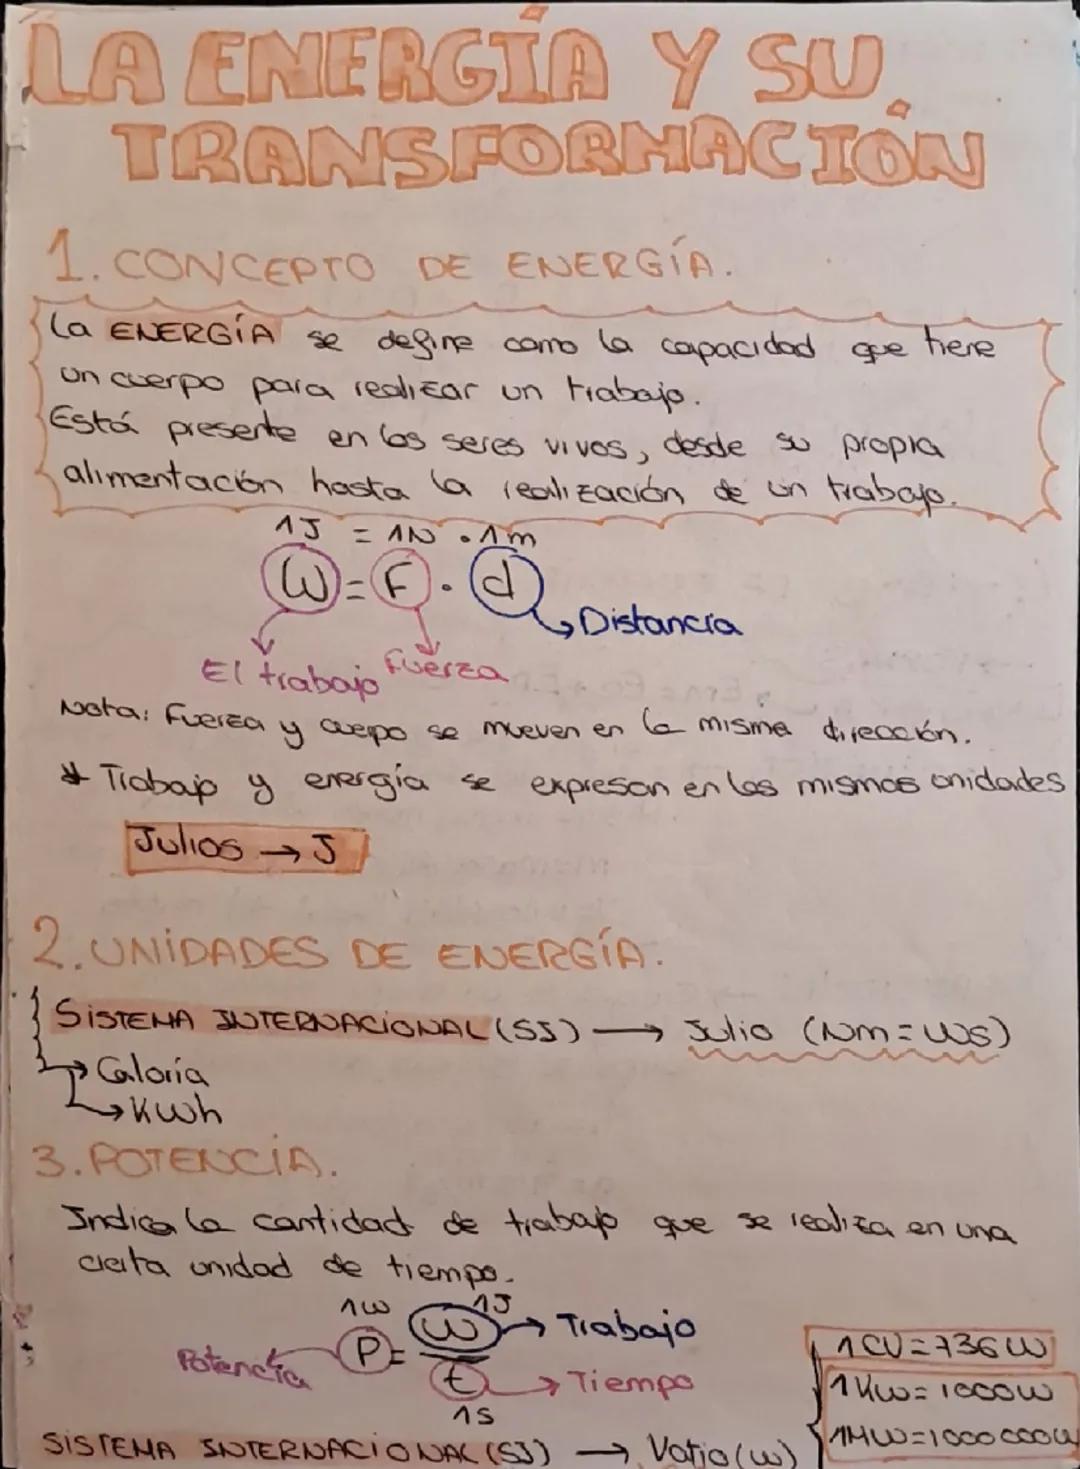 LA ENERGÍA Y SU
TRANSFORMACIÓN
1. CONCEPTO DE ENERGÍA.
La ENERGÍA se define como la capacidad que tiene
un cuerpo para realizar un trabajo.
Está presente en los seres vivos, desde su propia
alimentación hasta la realización de un trabajo.
1J = 1N · 1m
W = F · d
Distancia
El trabajo Fuerza
Nota: Fuerza y cuerpo se mueven en la misma dirección.
* Trabajo y energía se expresan en las mismas unidades
Julios → J
2. UNIDADES DE ENERGÍA.
SISTEMA INTERNACIONAL (SI) → Julio (Nm = Ws)
→ Caloría
→ Kwh
3. POTENCIA.
Indica la cantidad de trabajo que se realiza en una
cierta unidad de tiempo.
1W 1J
P = W → Trabajo
Potencia
t → Tiempo
1s
1CV = 736W
1KW = 1000W
1MW = 1000000W
SISTEMA INTERNACIONAL (SI) → Vatio (W)